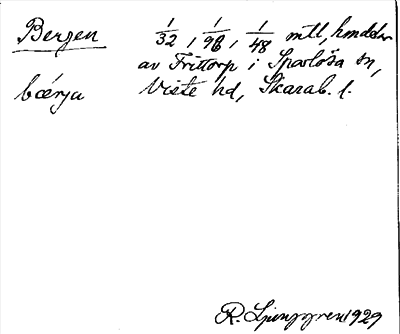 Bergen 1/32, 1/96, 1/48 mtl, hmdelar
av Frittorp i Sparlösa sn,
bærja Viste hd, Skarab. l.
R. Ljunggren 1929